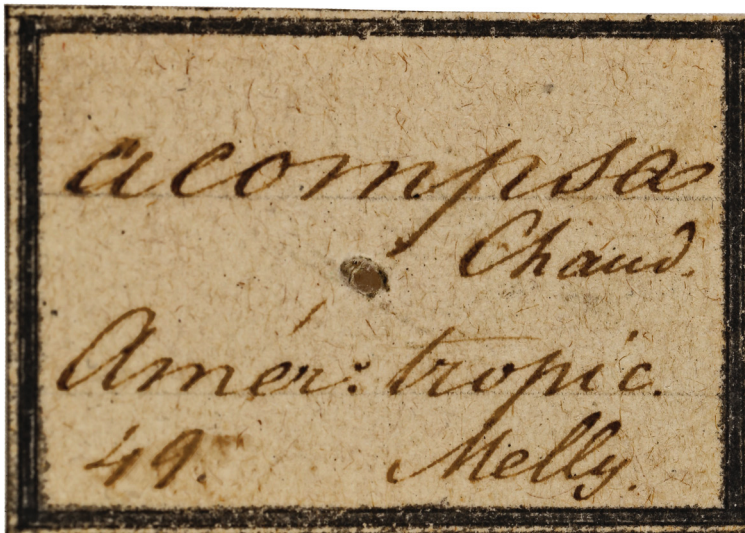 acompsa
Chaud.
Amér: tropic.
49. Melly.